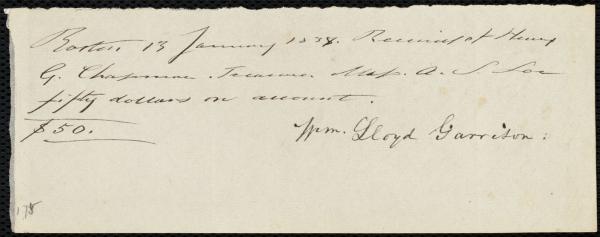 Boston 13 January 1838. Received of Henry
G. Chapman Treasurer Mass. A. S. Soc
fifty dollars on account.
$50.
Wm. Lloyd Garrison.
175